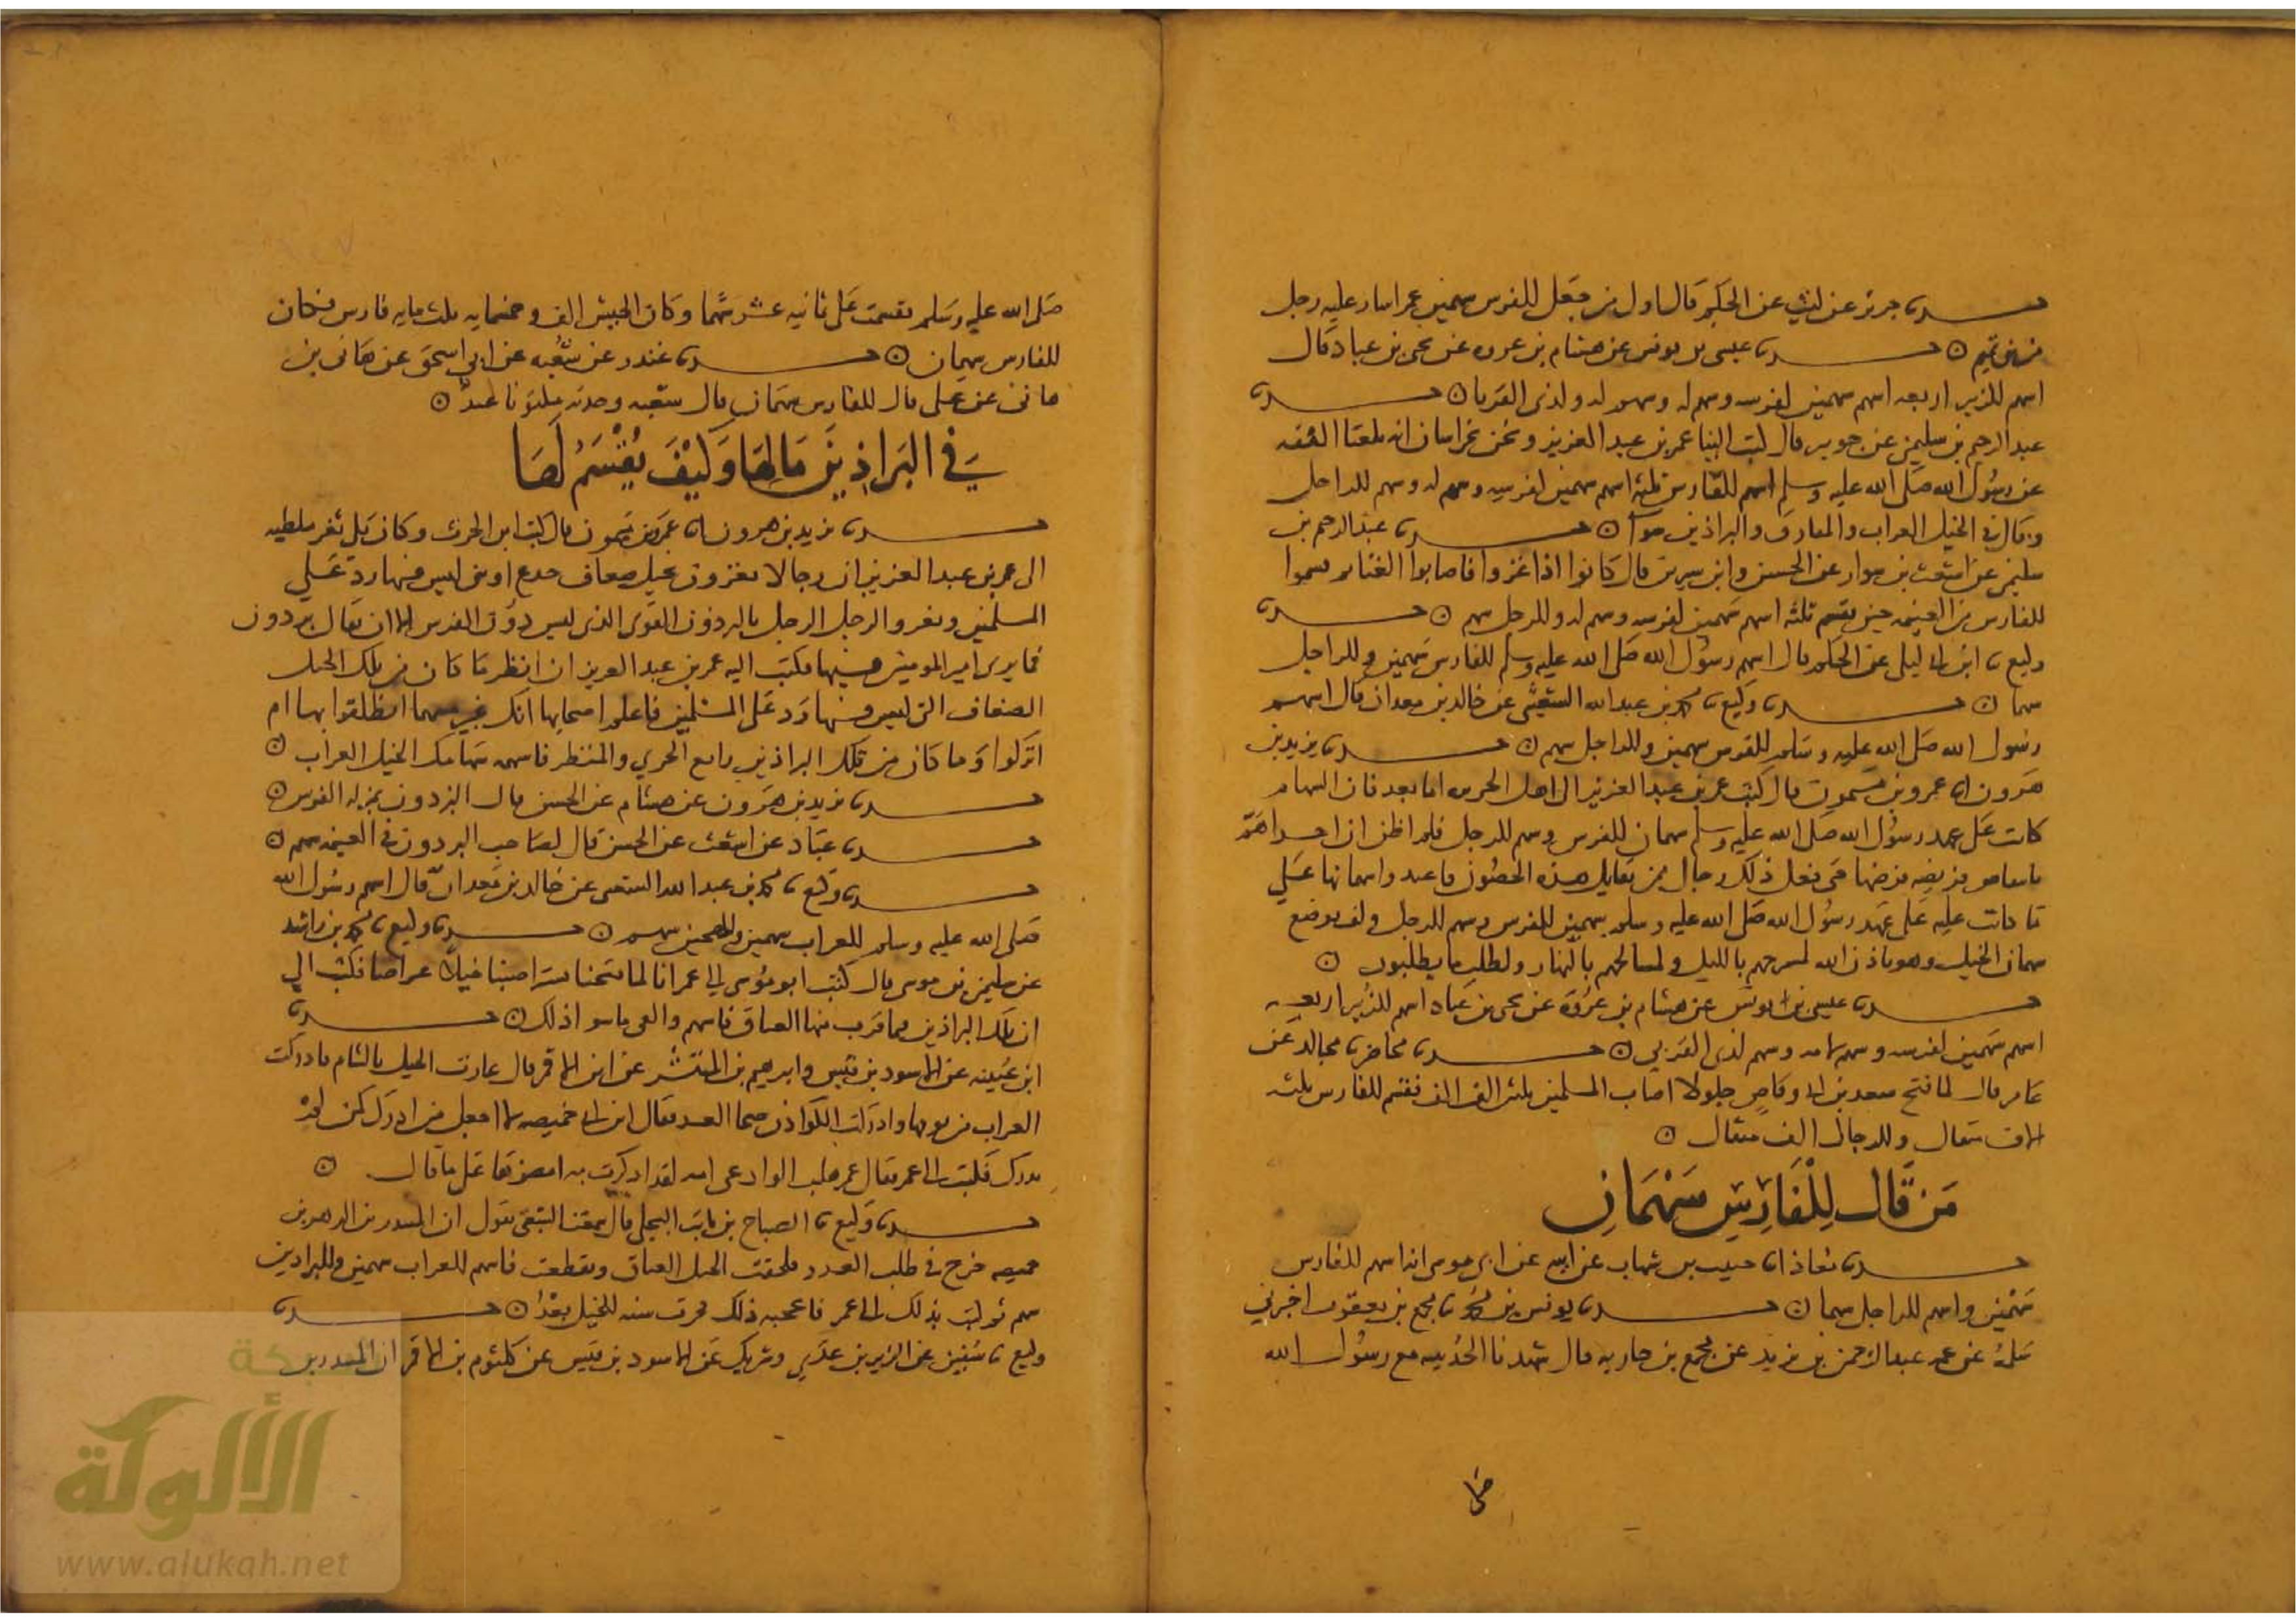 حدثنا جرير عن ليث عن الحكم قال اول من جعل للفرس سهمين عمر اشار عليه رجل
من بني تميم ۞ حدثنا عيسى بن يونس عن هشام بن عروه عن يحيى بن عباد قال
اسهم للزبير اربعه اسهم سهمين لفرسه وسهم له وسهم لذي القربا ۞ حدثنا
عبد الرحيم بن سليمن عن جويبر قال كتب الينا عمر بن عبد العزيز ونحن بخراسان انه بلغنا الثقه
عن رسول الله صلى الله عليه وسلم اسهم للفارس ثلثه اسهم سهمين لفرسه وسهم له وسهم للراجل
وقال في الخيل العراب والمقارف والبراذين سوآ ۞ حدثنا عبد الرحيم بن
سليمن عن اشعث بن سوار عن الحسن وابن سيرين قال كانوا اذا غزوا فاصابوا الغنائم قسموا
للفارس من الغنيمه حين تقسم ثلثه اسهم سهمين لفرسه وسهم له وللرجل سهم ۞ حدثنا
وكيع ثنا ابن ابي ليلى عن الحكم قال اسهم رسول الله صلى الله عليه وسلم للفارس سهمين وللراجل
سهما ۞ حدثنا وكيع ثنا محمد بن عبد الله الشعيثي عن خالد بن معدان قال اسهم
رسول الله صلى الله عليه وسلم للفرس سهمين وللراجل سهم ۞ حدثنا يزيد بن
هرون انا عمرو بن ميمون قال كتب عمر بن عبد العزيز الى اهل الجزيره اما بعد فان السهام
كانت على عهد رسول الله صلى الله عليه وسلم سهمان للفرس وسهم للرجل فلم اظن ان احدا هم
بانتقاص فريضه فرضها حتى فعل ذلك رجال ممن يقاتل هذه الحصون فاعد واسهمانها على
ما كانت عليه على عهد رسول الله صلى الله عليه وسلم سهمين للفرس وسهم للرجل وكيف يوضع
سهمان الخيل وهو باذن الله لمسرحهم بالليل ولمسالحهم بالنهار ولطلب ما يطلبون ۞
حدثنا عيسى بن يونس عن هشام بن عروة عن يحيى بن عباد اسهم للزبير اربعه
اسهم سهمين لفرسه وسهم لامه وسهم لذي القربى ۞ حدثنا محاضر ثنا مجالد عن
عامر قال لما فتح سعد بن ابي وقاص جلولا اصاب المسلمين ثلثين الف الف فقسم للفارس ثلثه
الاف مثقال وللرجال الف مثقال ۞
مَن قَالَ لِلْفَارِسِ سَهْمَانِ
حدثنا معاذ انا حبيب بن شهاب عن ابيه عن ابي موسى انه اسهم للفارس
سهمين واسهم للراجل سهما ۞ حدثنا يونس بن محمد ثنا مجمع بن يعقوب اخبرني
عن عمه عبد الرحمن بن يزيد عن مجمع بن جاريه قال شهدنا الحديبيه مع رسول الله
صلى الله عليه وسلم فقسمت على ثمانيه عشر سهما وكان الجيش الف وخمسمايه ثلث مايه فارس فكان
للفارس سهمان ۞ حدثنا غندر عن شعبه عن ابي اسحق عن هانى بن
هانى عن علي قال للفارس سهمان قال شعبه وجدته مكتوبا عنده ۞
في البَرَاذِينَ مَا لهَا وَكَيْفَ يُقْسَمُ لَهَا
حدثنا يزيد بن هرون انا عمرو بن ميمون قال كتب ابن الحرث وكان يلي ثغر ملطيه
الى عمر بن عبد العزيز ان رجالا يغزون بخيل ضعاف جذع او ثني ليس فيها رد على
المسلمين ويغزو الرجل الرجل بالبرذون القوي الذي ليس دون الفرس الا ان يقال برذون
فما يرى امير المومنين فيها فكتب اليه عمر بن عبد العزيز ان انظر ما كان من تلك الخيل
الضعاف التي ليس فيها رد على المسلمين فاعلم اصحابها انك غير مسهمها انطلقوا بها ام
اتركوا وما كان من تلك البراذين رايع الجري والمنظر فاسهمه سهامك الخيل العراب ۞
حدثنا يزيد بن هرون عن هشام عن الحسن قال البرذون بمنزله الفرس ۞
حدثنا عباد عن اشعث عن الحسن قال لصاحب البرذون في الغنيمه سهم ۞
حدثنا وكيع ثنا محمد بن عبد الله الشعيثي عن خالد بن معدان قال اسهم رسول الله
صلى الله عليه وسلم للعراب سهمين وللهجين سهم ۞ حدثنا وكيع ثنا محمد بن راشد
عن سليمن بن موسى قال كتب ابو موسى الى عمر انا لما فتحنا تستر اصبنا خيلا عراضا فكتب الي
ان تلك البراذين فما قارب منها العتاق فاسهم والغي ما سوا ذلك ۞ حدثنا
ابن عيينه عن الاسود بن قيس وابرهيم بن المنتشر عن ابن الاقمر قال غارت الخيل بالشام فادركت
العراب من يومها وادركت الكوادن ضحا الغد فقال ابن ابي خميصه لا اجعل من ادرك كمن لم
يدرك فكتب الى عمر فقال عمر هبلت الوادعي امه لقد اذكرت به امضوها على ما قال ۞
حدثنا وكيع ثنا الصباح بن ثابت البجلي قال سمعت الشعبي يقول ان المنذر بن الدهر بن
حميصه خرج في طلب العدو فلحقت الخيل العتاق وتقطعت فاسهم للعراب سهمين وللبراذين
سهم ثم كتب بذلك الى عمر فاعجبه ذلك فجرت سنه للخيل بعدُ ۞ حدثنا
وكيع ثنا سفين عن الزبير بن عدي وشريك عن الاسود بن قيس عن كلثوم بن الاقمر ان المنذر بن
شبكة
الألوكة
www.alukah.net